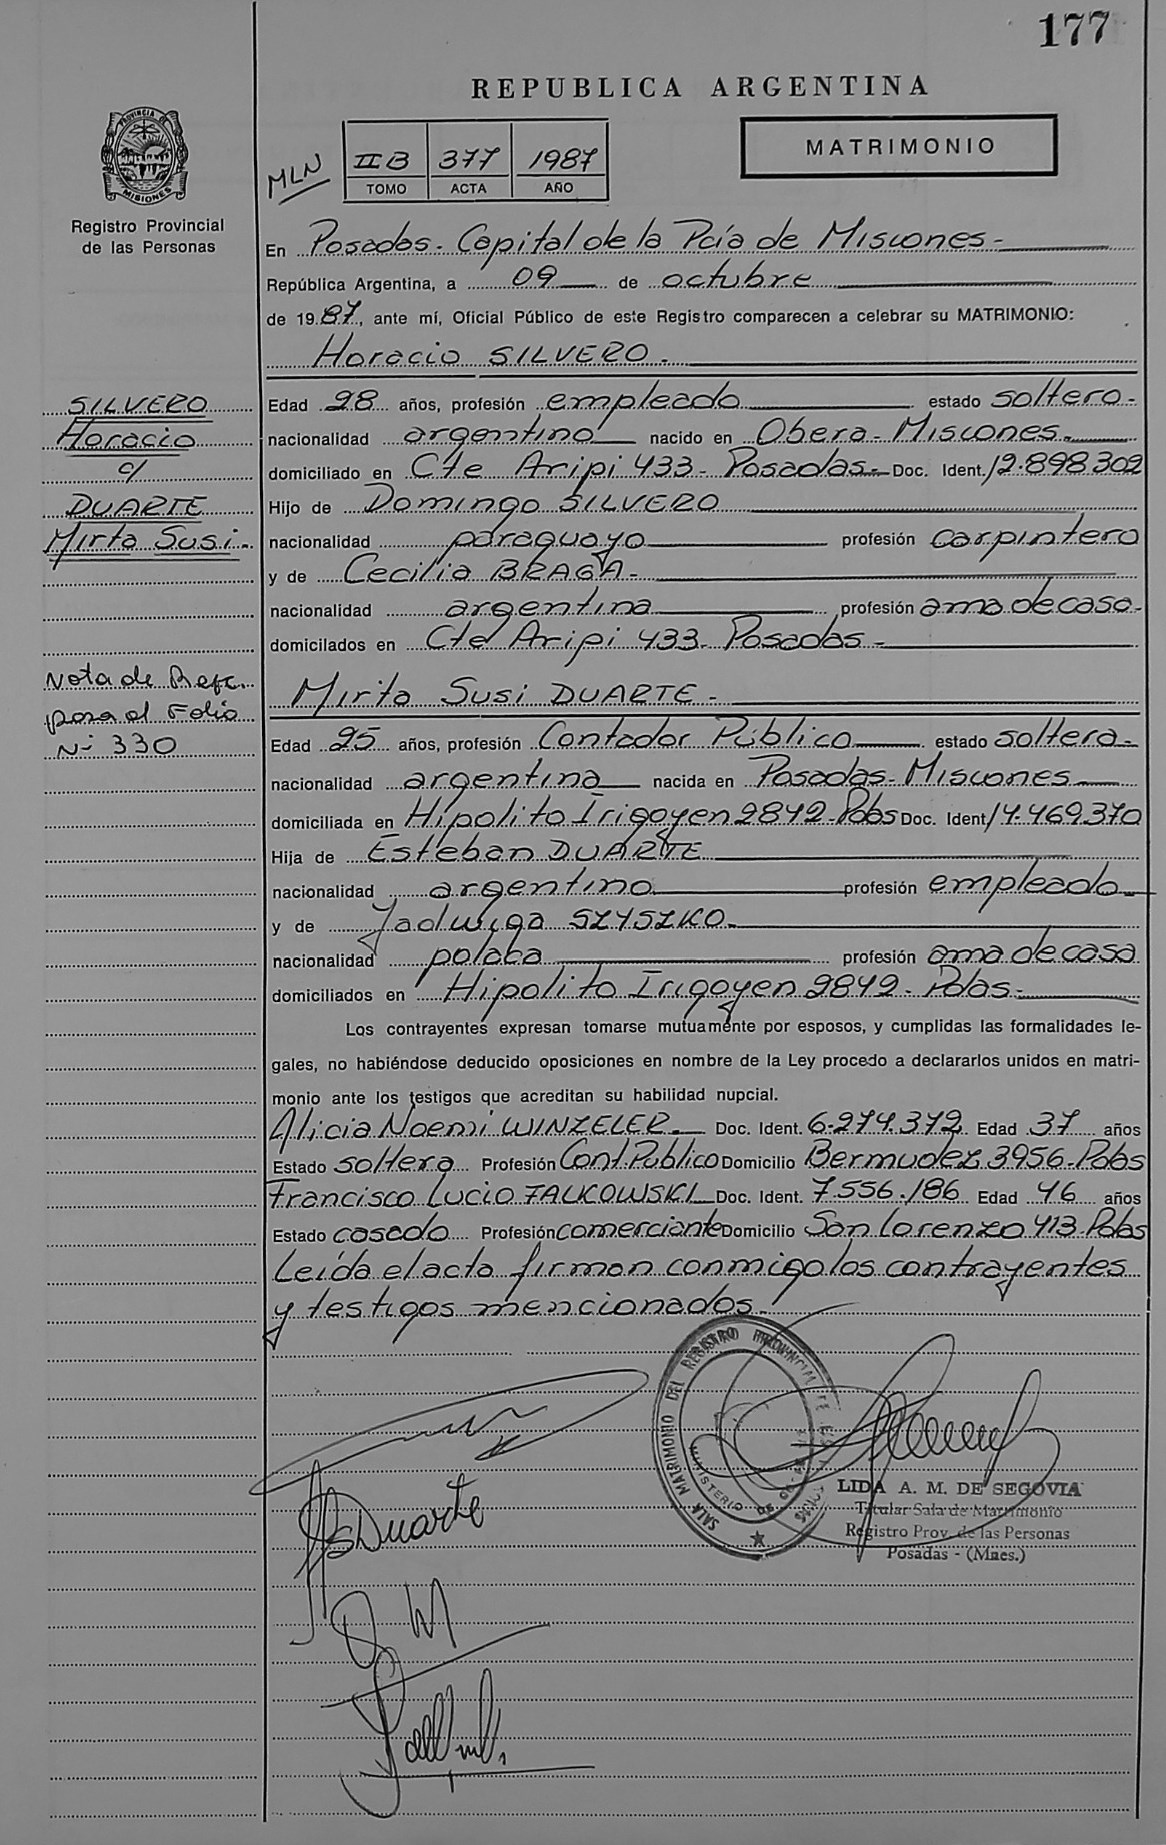 177
REPUBLICA ARGENTINA
PROVINCIA DE
MISIONES
Registro Provincial
de las Personas
MLN
II B 377 1987
TOMO ACTA AÑO
MATRIMONIO
En Posadas - Capital de la Pcia de Misiones -
República Argentina, a 09 de octubre
de 1987, ante mí, Oficial Público de este Registro comparecen a celebrar su MATRIMONIO:
Horacio SILVERO -
SILVERO
Horacio
c/
DUARTE
Mirta Susi -
Edad 28 años, profesión empleado estado soltero -
nacionalidad argentino nacido en Obera - Misiones -
domiciliado en Cte Aripi 433 - Posadas - Doc. Ident. 12.898302
Hijo de Domingo SILVERO
nacionalidad paraguayo profesión carpintero
y de Cecilia BRAGA -
nacionalidad argentina profesión ama de casa -
domicilados en Cte Aripi 433 - Posadas -
Nota de Refc.
para el Folio
Nº 330
Mirta Susi DUARTE -
Edad 25 años, profesión Contador Público estado soltera -
nacionalidad argentina nacida en Posadas - Misiones
domiciliada en Hipolito Irigoyen 2842 - Pdas Doc. Ident. 14.469.370
Hija de Esteban DUARTE
nacionalidad argentino profesión empleado -
y de Jadwiga SZYSZKO -
nacionalidad polaca profesión ama de casa
domiciliados en Hipolito Irigoyen 2842 - Pdas -
Los contrayentes expresan tomarse mutuamente por esposos, y cumplidas las formalidades le-
gales, no habiéndose deducido oposiciones en nombre de la Ley procedo a declararlos unidos en matri-
monio ante los testigos que acreditan su habilidad nupcial.
Alicia Noemi WINZELER - Doc. Ident. 6.274.372 Edad 37 años
Estado soltera Profesión Cont. Público Domicilio Bermudez 3956 - Pdas
Francisco Lucio FALKOWSKI Doc. Ident. 7.556.186 Edad 46 años
Estado casado Profesión comerciante Domicilio San Lorenzo 413 Pdas
Leída el acta firman conmigo los contrayentes
y testigos mencionados -
SALA MATRIMONIO DEL REGISTRO PROVINCIAL DE
MINISTERIO DE
Duarte
LIDA A. M. DE SEGOVIA
Titular Sala de Matrimonio
Registro Prov. de las Personas
Posadas - (Mnes.)